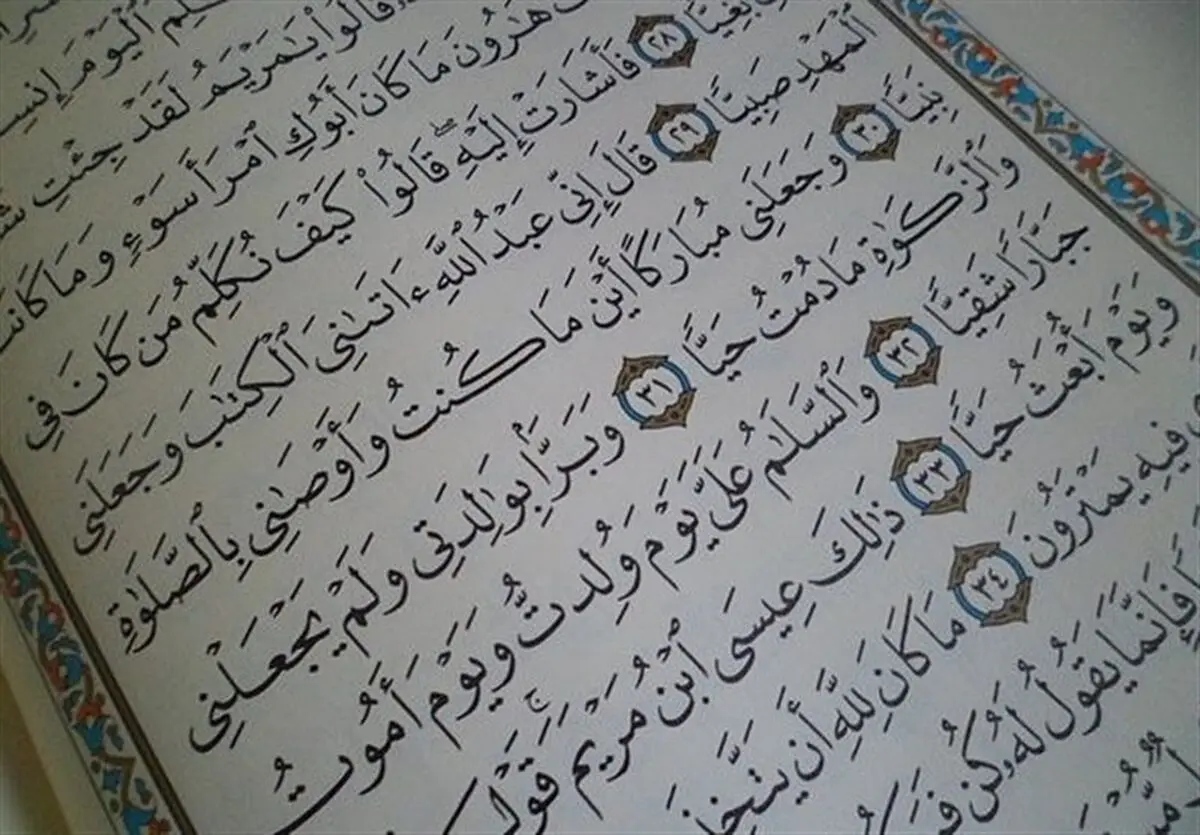 ٱلْيَوْمَ
قَالُوا۟ يَـٰمَرْيَمُ لَقَدْ جِئْتِ
هَـٰرُونَ مَا كَانَ أَبُوكِ ٱمْرَأَ سَوْءٍ وَمَا كَانَت
بَغِيًّا ٢٨ فَأَشَارَتْ إِلَيْهِ ۖ قَالُوا۟ كَيْفَ نُكَلِّمُ مَن كَانَ فِى
ٱلْمَهْدِ صَبِيًّا ٢٩ قَالَ إِنِّى عَبْدُ ٱللَّهِ ءَاتَىٰنِىَ ٱلْكِتَـٰبَ وَجَعَلَنِى
نَبِيًّا ٣٠ وَجَعَلَنِى مُبَارَكًا أَيْنَ مَا كُنتُ وَأَوْصَـٰنِى بِٱلصَّلَوٰةِ
وَٱلزَّكَوٰةِ مَا دُمْتُ حَيًّا ٣١ وَبَرًّۢا بِوَٰلِدَتِى وَلَمْ يَجْعَلْنِى
جَبَّارًا شَقِيًّا ٣٢ وَٱلسَّلَـٰمُ عَلَىَّ يَوْمَ وُلِدتُّ وَيَوْمَ أَمُوتُ
وَيَوْمَ أُبْعَثُ حَيًّا ٣٣ ذَٰلِكَ عِيسَى ٱبْنُ مَرْيَمَ ۚ قَوْلَ
فِيهِ يَمْتَرُونَ ٣٤ مَا كَانَ لِلَّهِ أَن يَتَّخِذَ
فَإِنَّمَا يَقُولُ لَهُۥ كُن